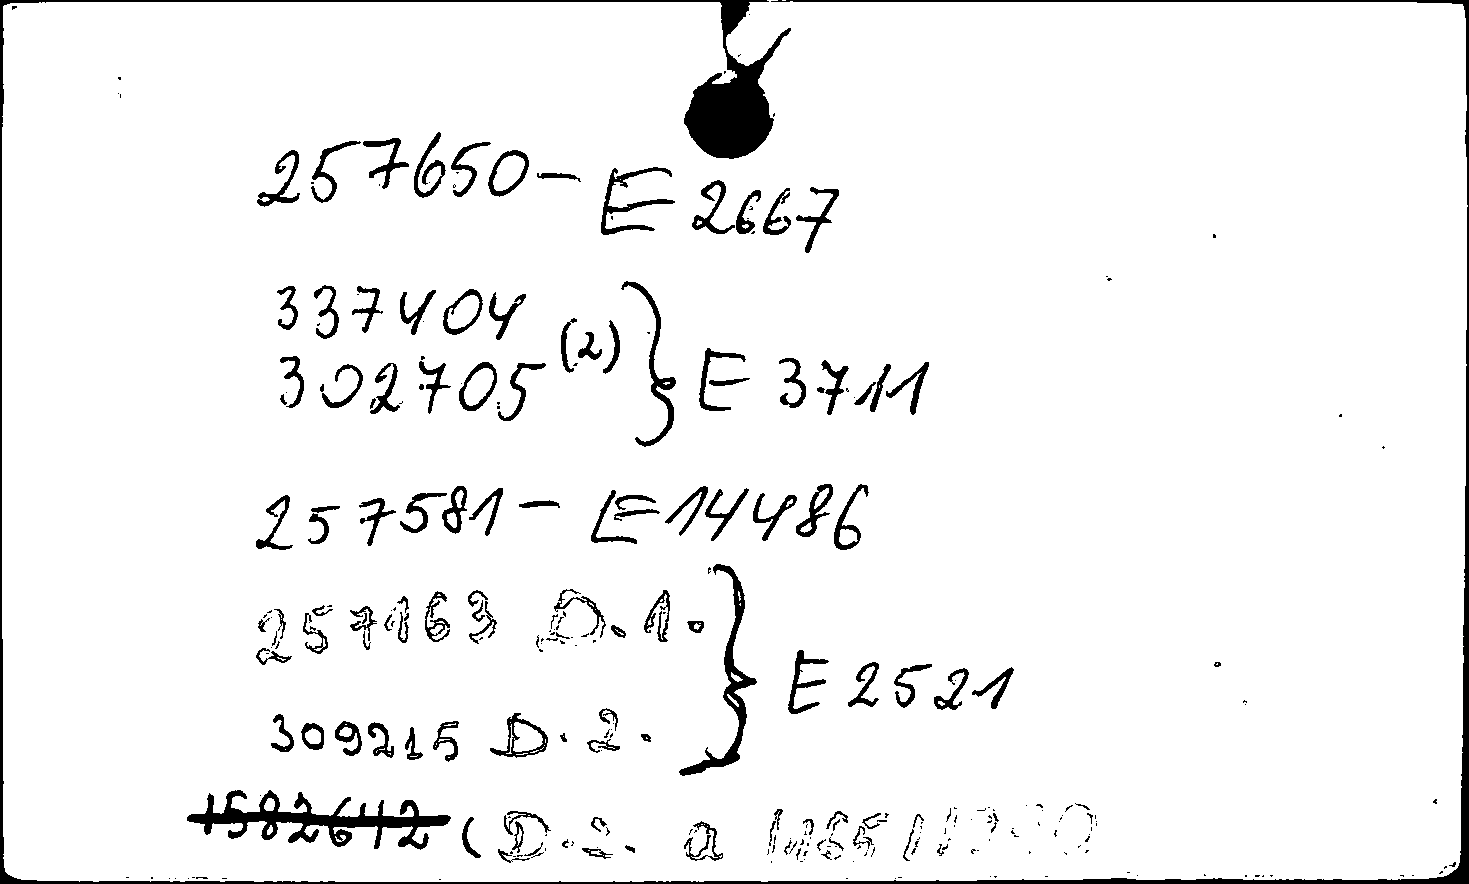 257650 – E 2667
337404
302705 (2) } E 3711
257581 – E 14486
257163 D. 1.
309215 D. 2. } E 2521
1582642 (D. 2. a